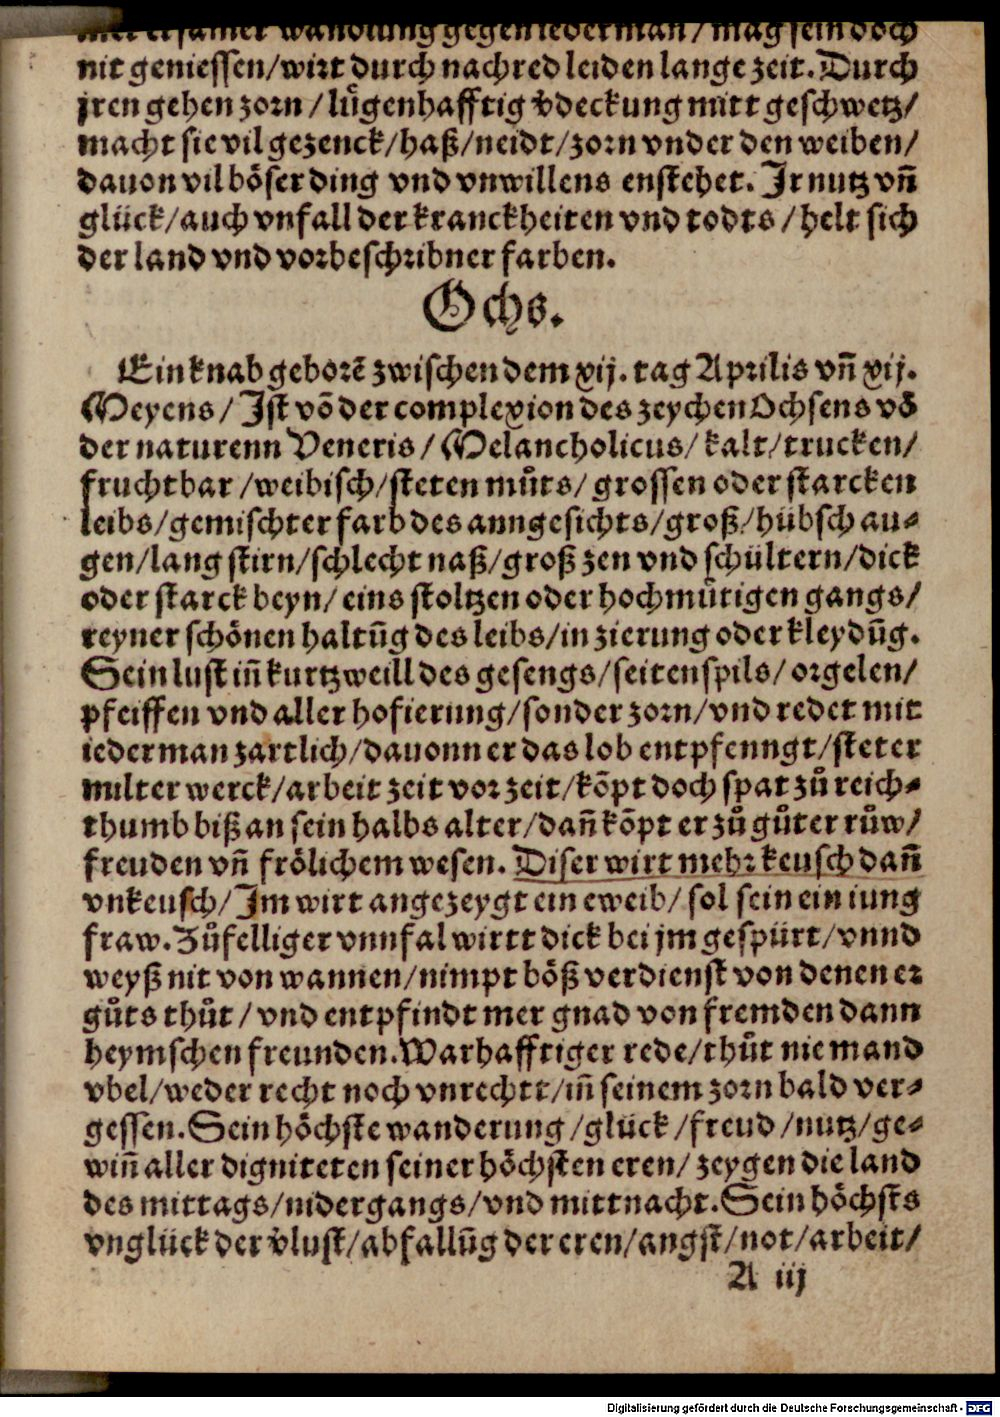 mer ersamer wandlung gegen iederman / mag sein doch
nit geniessen/wirt durch nachred leiden lange zeit. Durch
jren gehen zorn / lůgenhafftig v̄deckung mitt geschwetz/
macht sie vil gezenck/haß/neidt/zorn vnder den weiben/
dauon vil böser ding vnd vnwillens enstehet. Ir nutz vñ
glück/auch vnfall der kranckheiten vnd todts / helt sich
der land vnd vorbeschribner farben.
Ochs.
Ein knab geborẽ zwischen dem xij. tag Aprilis vñ xij.
Meyens / Ist võ der complexion des zeychen Ochsens võ
der naturenn Veneris / Melancholicus/ kalt/trucken/
fruchtbar /weibisch/steten můts/ grossen oder starcken
leibs/gemischter farb des anngesichts/groß/hübsch au-
gen/lang stirn/schlecht naß/groß zen vnd schültern/dick
oder starck beyn/ eins stoltzen oder hochmůtigen gangs/
reyner schönen haltũg des leibs/in zierung oder kleydũg.
Sein lust iñ kurtzweill des gesengs/seitenspils/ orgelen/
pfeiffen vnd aller hofierung/sonder zorn/vnd redet mit
iederman zartlich/dauonn er das lob entpfenngt/steter
milter werck/arbeit zeit vor zeit/kõpt doch spat zů reich-
thumb biß an sein halbs alter/dañ kõpt er zů gůter růw/
freuden vñ frölichem wesen. Diser wirt mehr keusch dañ
vnkeusch/Im wirt angezeygt ein eweib/ sol sein ein iung
fraw. Zůfelliger vnnfal wirtt dick bei jm gespürt/vnnd
weyß nit von wannen/nimpt böß verdienst von denen er
gůts thůt / vnd entpfindt mer gnad von fremden dann
heymschen freunden. Warhafftiger rede/thůt niemand
vbel/weder recht noch vnrechtt/iñ seinem zorn bald ver-
gessen. Sein höchste wanderung /glück /freud /nutz/ge-
wiñ aller digniteten seiner höchsten eren/ zeygen die land
des mittags/nidergangs/vnd mittnacht. Sein höchsts
vnglück der v̄lust/abfallũg der eren/angst/not/arbeit/
A iij
Digitalisierung gefördert durch die Deutsche Forschungsgemeinschaft - DFG